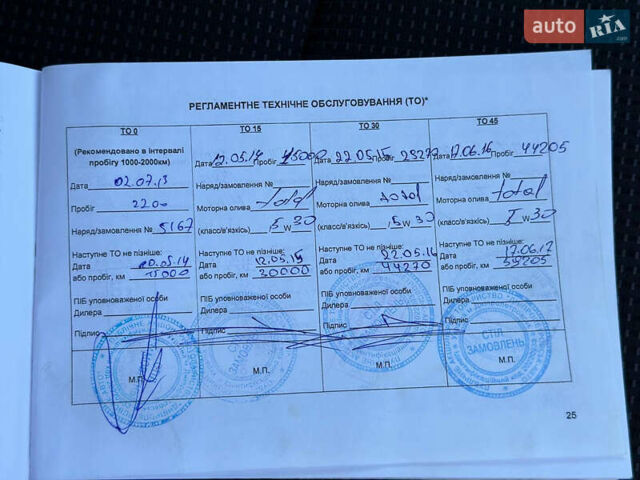 auto RIA .com
РЕГЛАМЕНТНЕ ТЕХНІЧНЕ ОБСЛУГОВУВАННЯ (ТО)*
ТО 0
(Рекомендовано в інтервалі
пробігу 1000-2000км)
Дата 02.07.13
Пробіг 2200
Наряд/замовлення № 5167
Наступне ТО не пізніше:
Дата 20.05.14
або пробіг, км 15000
ПІБ уповноваженої особи
Дилера
Підпис
М.П.
ТО 15
Дата 12.05.14 Пробіг 15000
Наряд/замовлення №
Моторна олива total
(класс/в'язкість) 5 W 30
Наступне ТО не пізніше:
Дата 12.05.15
або пробіг, км 30000
ПІБ уповноваженої особи
Дилера
Підпис
М.П.
ТО 30
Дата 22.05.15 Пробіг 29270
Наряд/замовлення №
Моторна олива total
(класс/в'язкість) 5 W 30
Наступне ТО не пізніше:
Дата 22.05.16
або пробіг, км 44270
ПІБ уповноваженої особи
Дилера
Підпис
М.П.
ТО 45
Дата 17.06.16 Пробіг 44205
Наряд/замовлення №
Моторна олива total
(класс/в'язкість) 5 W 30
Наступне ТО не пізніше:
Дата 17.06.17
або пробіг, км 59205
ПІБ уповноваженої особи
Дилера
Підпис
СТІЛ
ЗАМОВЛЕНЬ
М.П.
25